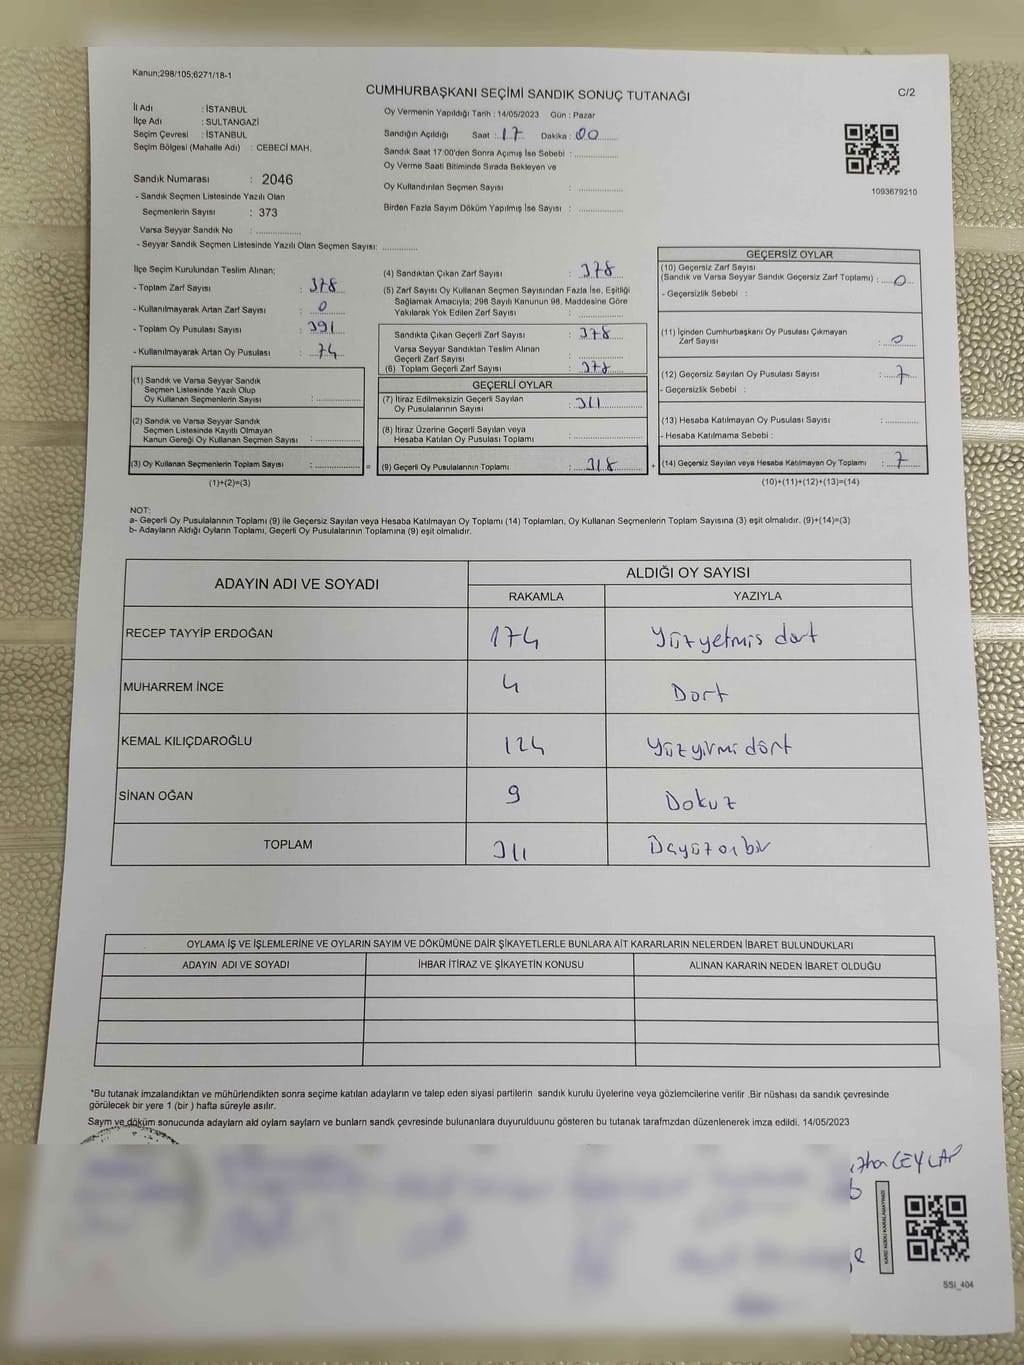 Kanun;298/105;6271/18-1
CUMHURBAŞKANI SEÇİMİ SANDIK SONUÇ TUTANAĞI
C/2
İl Adı : İSTANBUL
İlçe Adı : SULTANGAZİ
Seçim Çevresi : İSTANBUL
Seçim Bölgesi (Mahalle Adı) : CEBECİ MAH.
Sandık Numarası : 2046
- Sandık Seçmen Listesinde Yazılı Olan
Seçmenlerin Sayısı : 373
Varsa Seyyar Sandık No : ..............
- Seyyar Sandık Seçmen Listesinde Yazılı Olan Seçmen Sayısı: ............
Oy Vermenin Yapıldığı Tarih : 14/05/2023 Gün : Pazar
Sandığın Açıldığı Saat : 17 Dakika : 00
Sandık Saat 17:00'den Sonra Açımış İse Sebebi : ..............
Oy Verme Saati Bitiminde Sırada Bekleyen ve
Oy Kullandırılan Seçmen Sayısı : ..............
Birden Fazla Sayım Döküm Yapılmış İse Sayısı : ..............
1093679210
İlçe Seçim Kurulundan Teslim Alınan;
- Toplam Zarf Sayısı : 378
- Kullanılmayarak Artan Zarf Sayısı : 0
- Toplam Oy Pusulası Sayısı : 391
- Kullanılmayarak Artan Oy Pusulası : 74
(1) Sandık ve Varsa Seyyar Sandık
Seçmen Listesinde Yazılı Olup
Oy Kullanan Seçmenlerin Sayısı : ..............
(2) Sandık ve Varsa Seyyar Sandık
Seçmen Listesinde Kayıtlı Olmayan
Kanun Gereği Oy Kullanan Seçmen Sayısı : ..............
(3) Oy Kullanan Seçmenlerin Toplam Sayısı : ..............
(1)+(2)=(3)
=
(4) Sandıktan Çıkan Zarf Sayısı : 378
(5) Zarf Sayısı Oy Kullanan Seçmen Sayısından Fazla İse, Eşitliği
Sağlamak Amacıyla; 298 Sayılı Kanunun 98. Maddesine Göre
Yakılarak Yok Edilen Zarf Sayısı : ..............
Sandıkta Çıkan Geçerli Zarf Sayısı : 378
Varsa Seyyar Sandıktan Teslim Alınan
Geçerli Zarf Sayısı : ..............
(6) Toplam Geçerli Zarf Sayısı : 378
GEÇERLİ OYLAR
(7) İtiraz Edilmeksizin Geçerli Sayılan
Oy Pusulalarının Sayısı : 311
(8) İtiraz Üzerine Geçerli Sayılan veya
Hesaba Katılan Oy Pusulası Toplamı : ..............
(9) Geçerli Oy Pusulalarının Toplamı : 318
+
GEÇERSİZ OYLAR
(10) Geçersiz Zarf Sayısı
(Sandık ve Varsa Seyyar Sandık Geçersiz Zarf Toplamı) : 0
- Geçersizlik Sebebi :
(11) İçinden Cumhurbaşkanı Oy Pusulası Çıkmayan
Zarf Sayısı : 0
(12) Geçersiz Sayılan Oy Pusulası Sayısı : 7
- Geçersizlik Sebebi :
(13) Hesaba Katılmayan Oy Pusulası Sayısı : ..............
- Hesaba Katılmama Sebebi :
(14) Geçersiz Sayılan veya Hesaba Katılmayan Oy Toplamı : 7
(10)+(11)+(12)+(13)=(14)
NOT:
a- Geçerli Oy Pusulalarının Toplamı (9) ile Geçersiz Sayılan veya Hesaba Katılmayan Oy Toplamı (14) Toplamları, Oy Kullanan Seçmenlerin Toplam Sayısına (3) eşit olmalıdır. (9)+(14)=(3)
b- Adayların Aldığı Oyların Toplamı, Geçerli Oy Pusulalarının Toplamına (9) eşit olmalıdır.
ADAYIN ADI VE SOYADI
ALDIĞI OY SAYISI
RAKAMLA YAZIYLA
RECEP TAYYİP ERDOĞAN 174 Yüzyetmis dört
MUHARREM İNCE 4 Dört
KEMAL KILIÇDAROĞLU 124 Yüzyirmi dört
SİNAN OĞAN 9 Dokuz
TOPLAM 311
OYLAMA İŞ VE İŞLEMLERİNE VE OYLARIN SAYIM VE DÖKÜMÜNE DAİR ŞİKAYETLERLE BUNLARA AİT KARARLARIN NELERDEN İBARET BULUNDUKLARI
ADAYIN ADI VE SOYADI İHBAR İTİRAZ VE ŞİKAYETİN KONUSU ALINAN KARARIN NEDEN İBARET OLDUĞU
*Bu tutanak imzalandıktan ve mühürlendikten sonra seçime katılan adayların ve talep eden siyasi partilerin sandık kurulu üyelerine veya gözlemcilerine verilir .Bir nüshası da sandık çevresinde
görülecek bir yere 1 (bir ) hafta süreyle asılır.
Saym ve döküm sonucunda adaylarn ald oylarn saylarn ve bunlarn sandk çevresinde bulunanlara duyurulduunu gösteren bu tutanak tarafmzdan düzenlenerek imza edildi. 14/05/2023
CEYLAP
KARE KODU KARALAMAYINIZ
SSI_404